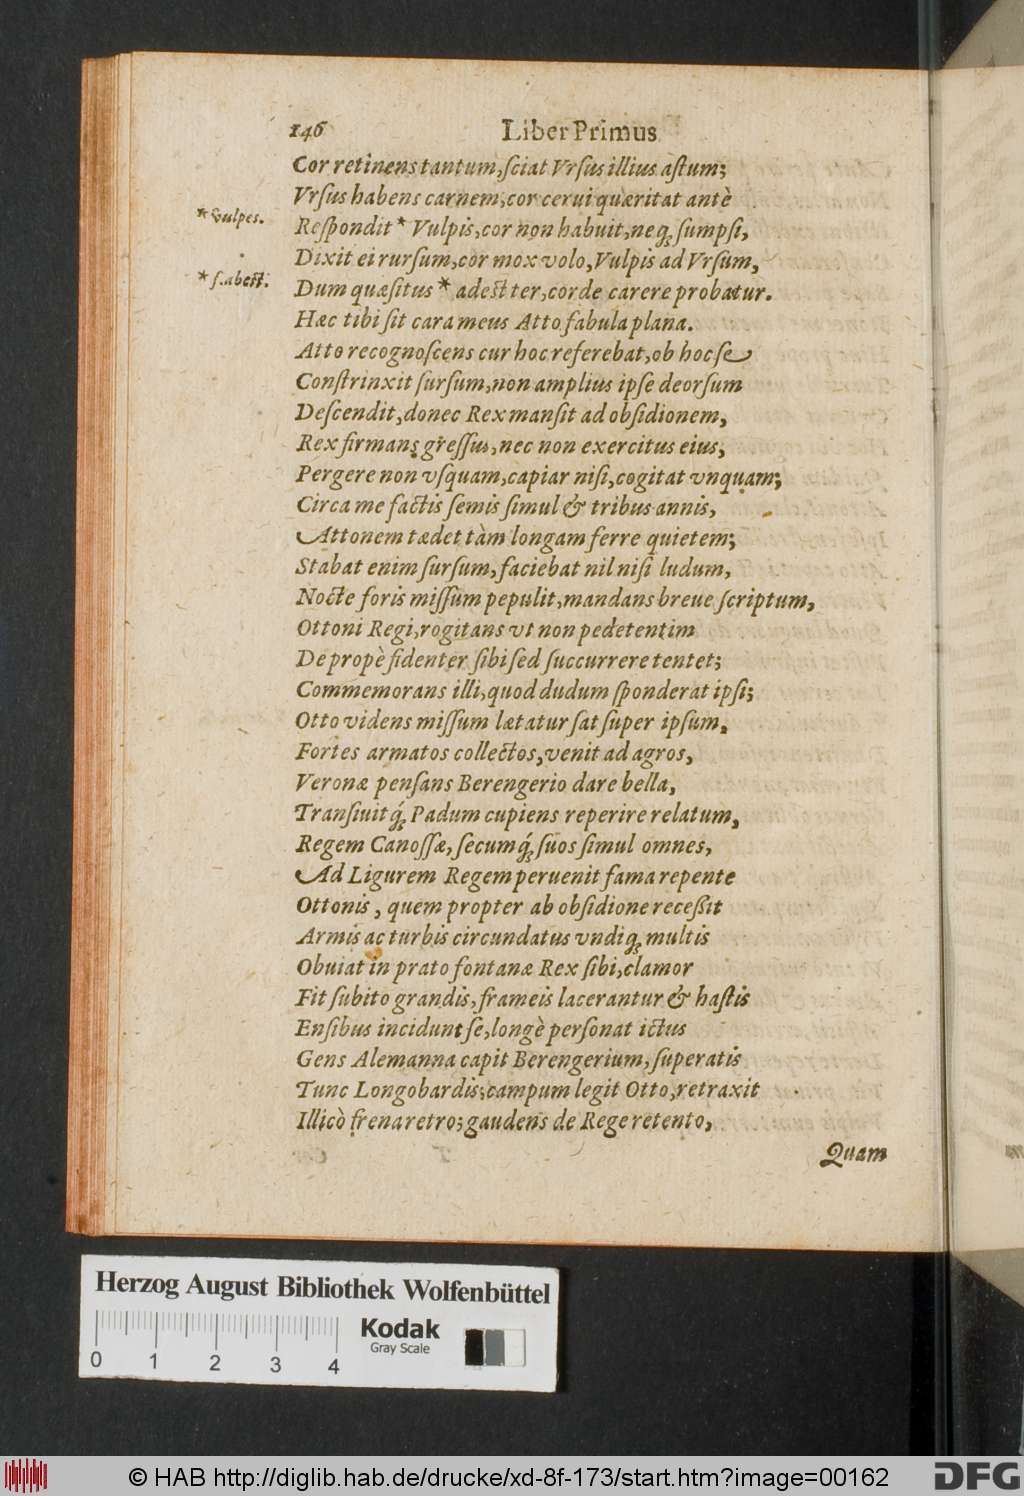 146 Liber Primus
Cor retinens tantum, ſciat Vrſus illius aſtum;
Vrſus habens carnem, cor cerui quæritat antè
* vulpes.
Reſpondit * Vulpis, cor non habuit, neqꝫ ſumpſi,
Dixit ei rurſum, cor mox volo, Vulpis ad Vrſum,
* ſ. abest.
Dum quæſitus * adest ter, corde carere probatur.
Hæc tibi ſit cara meus Atto fabula plana.
Atto recognoſcens cur hoc referebat, ob hoc ſe
Conſtrinxit ſurſum, non amplius ipſe deorſum
Deſcendit, donec Rex manſit ad obſidionem,
Rex firmans greſſus, nec non exercitus eius,
Pergere non vſquam, capiar niſi, cogitat vnquam;
Circa me factis ſemis ſimul & tribus annis,
Attonem tædet tàm longam ferre quietem;
Stabat enim ſurſum, faciebat nil niſi ludum,
Nocte foris miſſum pepulit, mandans breue ſcriptum,
Ottoni Regi, rogitans vt non pedetentim
De propè fidenter ſibi ſed ſuccurrere tentet;
Commemorans illi, quod dudum ſponderat ipſi;
Otto videns miſſum lætatur ſat ſuper ipſum,
Fortes armatos collectos, venit ad agros,
Veronæ penſans Berengerio dare bella,
Tranſiuitqꝫ́ Padum cupiens reperire relatum,
Regem Canoſſæ, ſecumqꝫ́ ſuos ſimul omnes,
Ad Ligurem Regem peruenit fama repente
Ottonis, quem propter ab obſidione receßit
Armis ac turbis circundatus vndiqꝫ multis
Obuiat in prato fontanæ Rex ſibi, clamor
Fit ſubito grandis, frameis lacerantur & haſtis
Enſibus incidunt ſe, longè perſonat ictus
Gens Alemanna capit Berengerium, ſuperatis
Tunc Longobardis; campum legit Otto, retraxit
Illicò frena retro; gaudens de Rege retento,
Quam
Herzog August Bibliothek Wolfenbüttel
0 1 2 3 4
Kodak
Gray Scale
© HAB http://diglib.hab.de/drucke/xd-8f-173/start.htm?image=00162
DFG